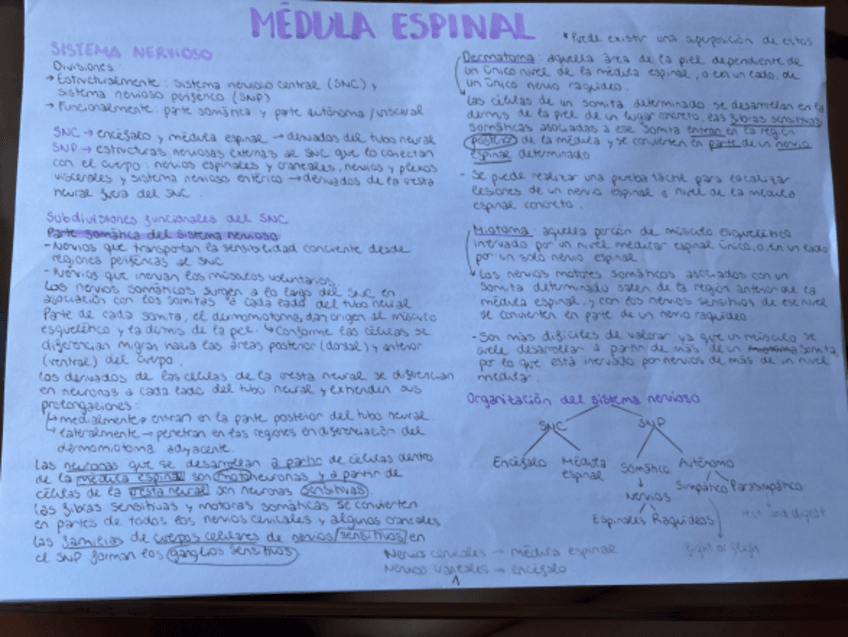 MÉDULA ESPINAL
SISTEMA NERVIOSO
Divisiones:
→ Estructuralmente: sistema nervioso central (SNC) y
sistema nervioso periférico (SNP)
→ Funcionalmente: parte somática y parte autónoma/visceral
SNC → encéfalo y médula espinal → derivados del tubo neural
SNP → estructuras nerviosas externas al SNC que lo conectan
con el cuerpo: nervios espinales y craneales, nervios y plexos
viscerales y sistema nervioso entérico → derivados de la cresta
neural fuera del SNC.
Subdivisiones funcionales del SNC
Parte somática del sistema nervioso
- Nervios que transportan la sensibilidad conciente desde
regiones periféricas al SNC
- Nervios que inervan los músculos voluntarios.
Los nervios somáticos surgen a lo largo del SNC en
asociación con los somitas a cada lado del tubo neural
Parte de cada somita, el dermomiotoma, dan origen al músculo
esquelético y la dermis de la piel. ↳ Conforme las células se
diferencian migran hacia las áreas posterior (dorsal) y anterior
(ventral) del cuerpo.
Los derivados de las células de la cresta neural se diferencian
en neuronas a cada lado del tubo neural y extienden sus
prolongaciones:
↳ medialmente → entran en la parte posterior del tubo neural
↳ lateralmente → penetran en las regiones en diferenciación del
dermomiotoma adyacente.
Las neuronas que se desarrollan a partir de células dentro
de la médula espinal son motoneuronas y a partir de
células de la cresta neural son neuronas sensitivas.
Las fibras sensitivas y motoras somáticas se convierten
en partes de todos los nervios cervicales y algunos craneales
Las familias de cuerpos celulares de nervios sensitivos en
el SNP forman los ganglios sensitivos
* Puede existir una superposición de estos
Dermatoma: aquella área de la piel dependiente de
un único nivel de la médula espinal, o en un lado, de
un único nervio raquídeo.
↳ Las células de un somita determinado se desarrollan en la
dermis de la piel de un lugar concreto, las fibras sensitivas
somáticas asociadas a ese somita entran en la región
posterior de la médula y se convierten en parte de un nervio
espinal determinado
- Se puede realizar una prueba táctil para localizar
lesiones de un nervio espinal o nivel de la médula
espinal concreto.
Miotoma: aquella porción de músculo esquelético
inervado por un nivel medular espinal único, o, en un lado
por un solo nervio espinal.
↳ Los nervios motores somáticos asociados con un
somita determinado salen de la región anterior de la
médula espinal, y con los nervios sensitivos de ese nivel
se convierten en parte de un nervio raquídeo.
- Son más difíciles de valorar ya que un músculo se
suele desarrollar a partir de más de un somita,
por lo que está inervado por nervios de más de un nivel
medular.
Organización del sistema nervioso
SNC SNP
Encéfalo Médula espinal Somático Autónomo
Nervios Simpático Parasimpático
Espinales Raquídeos rest and digest
fight or fligh
Nervios cervicales → médula espinal
Nervios craneales → encéfalo
1